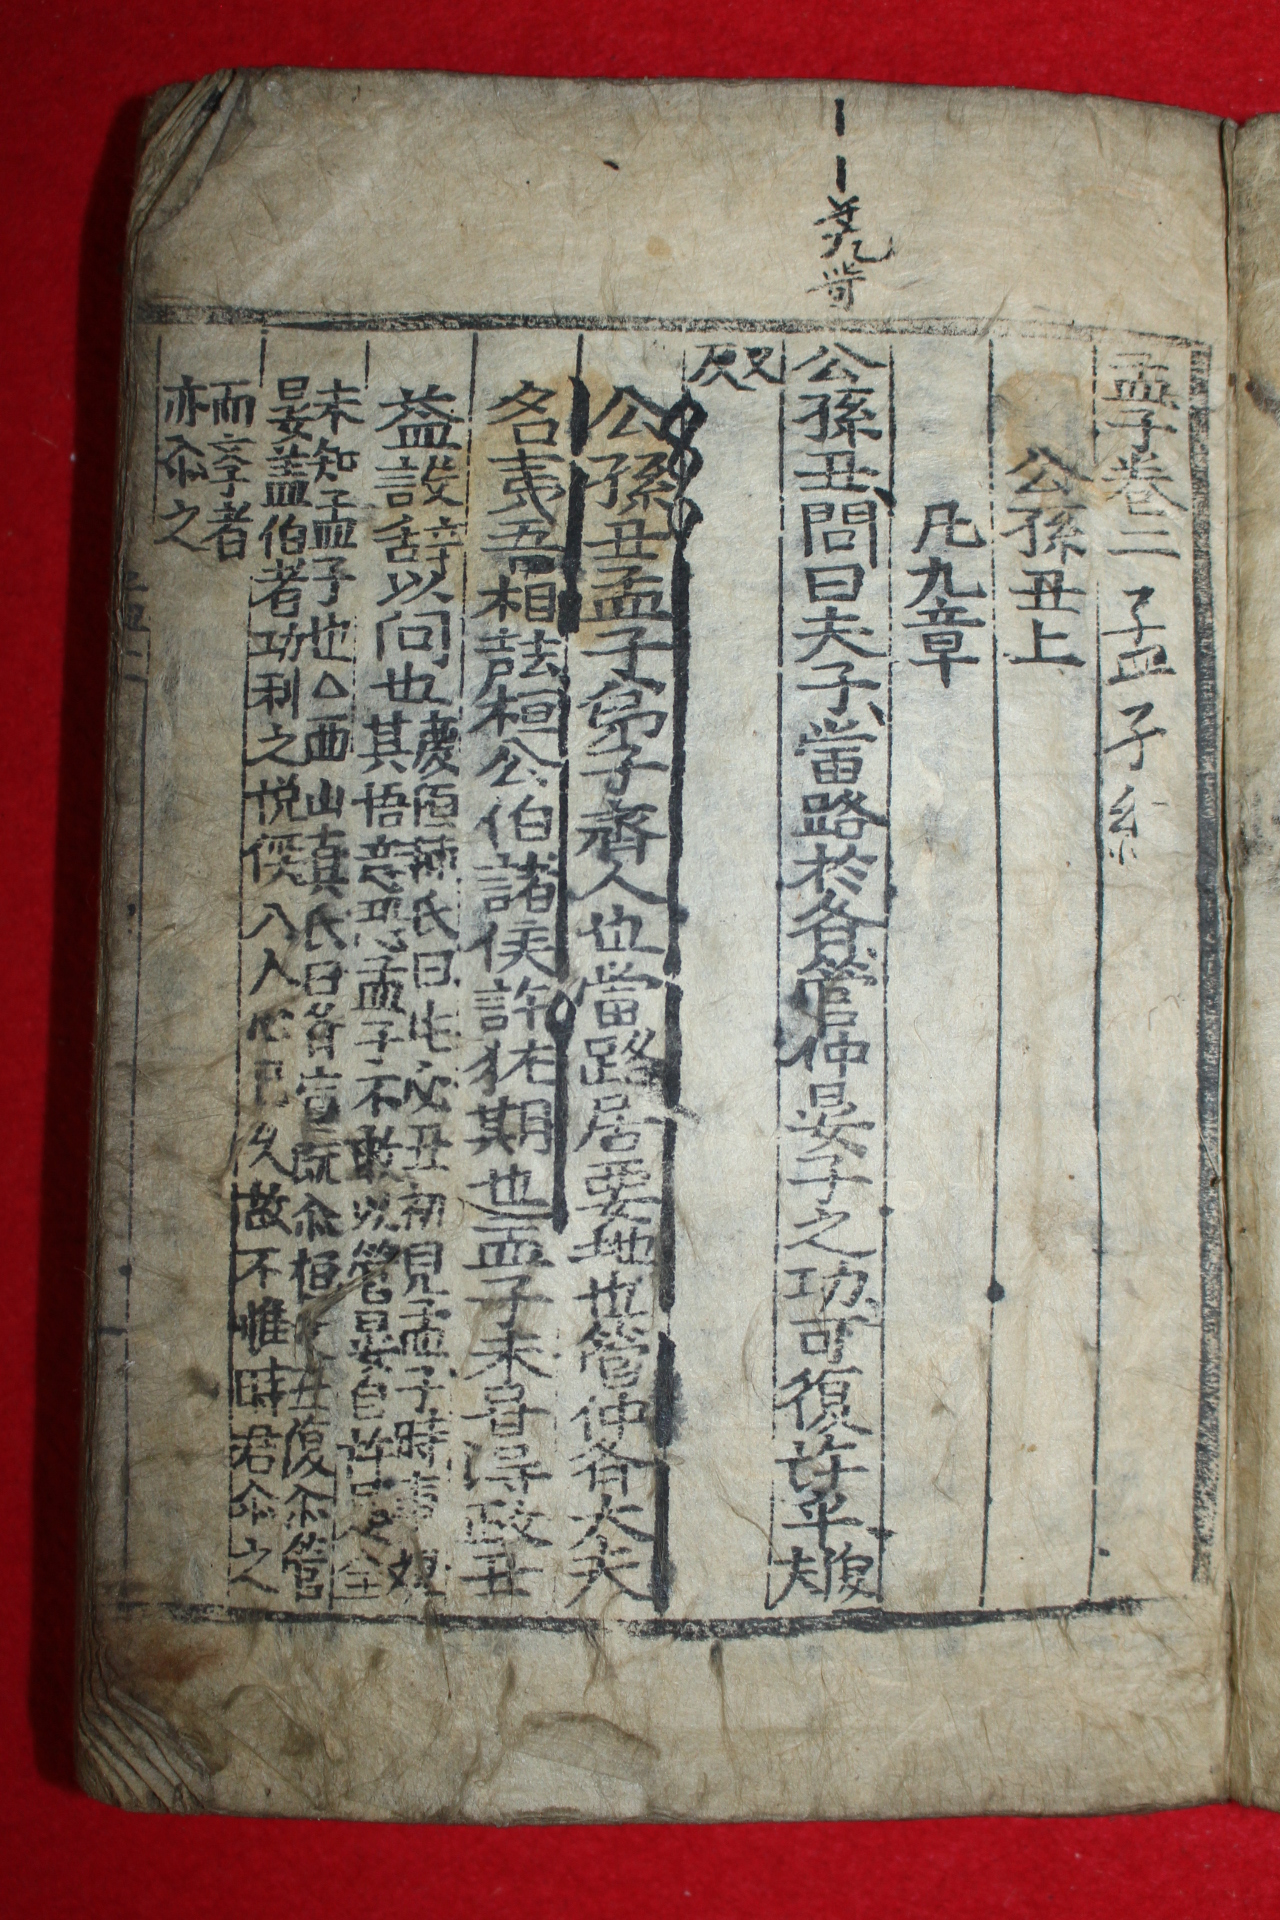 孟子卷三
公孫丑上
凡九章
公孫丑問曰夫子當路於齊管仲晏子之功可復許乎復扶
又反
公孫丑孟子弟子齊人也當路居要地也管仲齊大夫
名夷吾相齊桓公伯諸侯許犹期也孟子未甞淂政丑
益設辞以问也慶源輔氏曰此必丑初見孟子時事
其悟意恐孟子不敢以管晏自許
未知孟子也△西山真氏曰齊宣既桓丑復管
晏盖伯者功利之悦人心已久故不惟時君之
而斈者
亦之